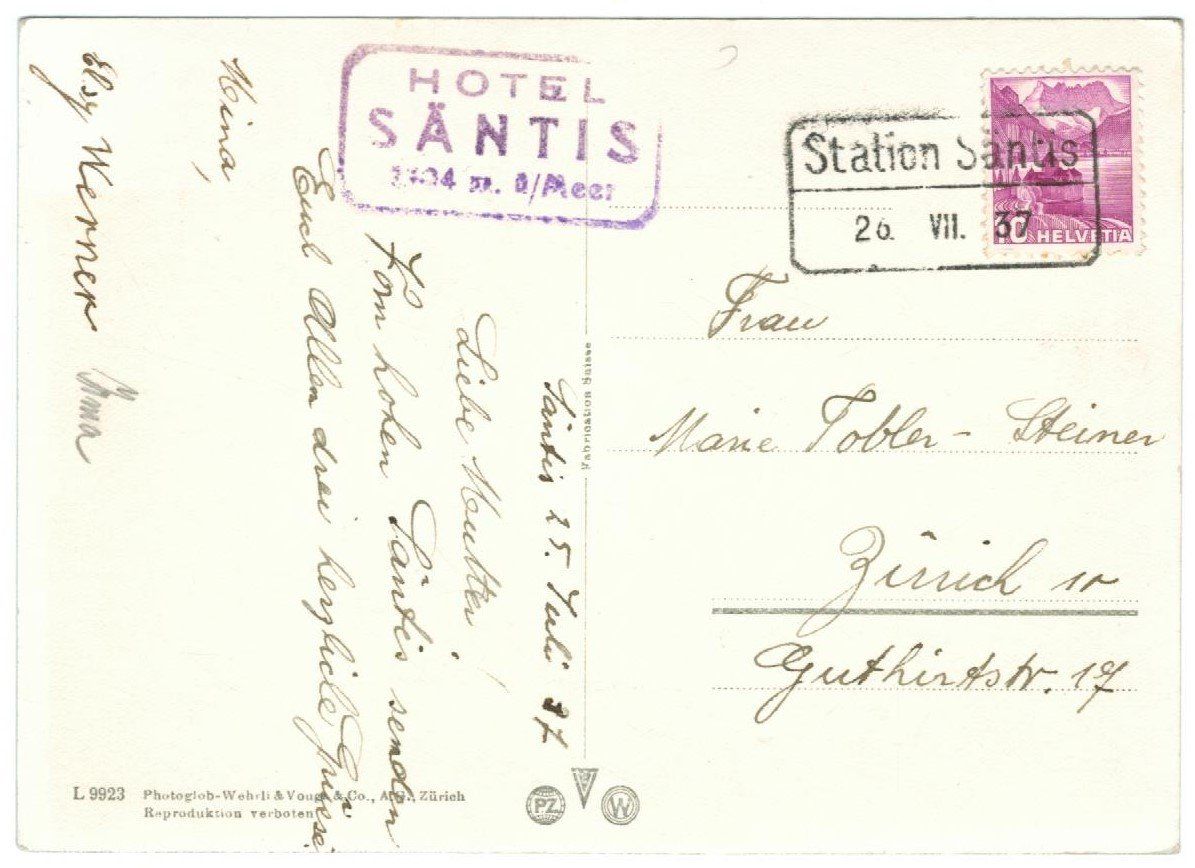 HOTEL
SÄNTIS
m. ü/Meer
Station Säntis
26. VII. 37
10 HELVETIA
Säntis 25. Juli 37
Liebe Mutter!
Vom hohen Säntis senden
Euch Allen drei herzliche Grüsse
Elsy Werner
Frau
Marie Tobler-Steiner
Zürich 10
Guthirtstr. 17
Fabrication Suisse
L 9923 Photoglob-Wehrli & Vouga & Co., A.G., Zürich
Reproduktion verboten
PZ
V
W